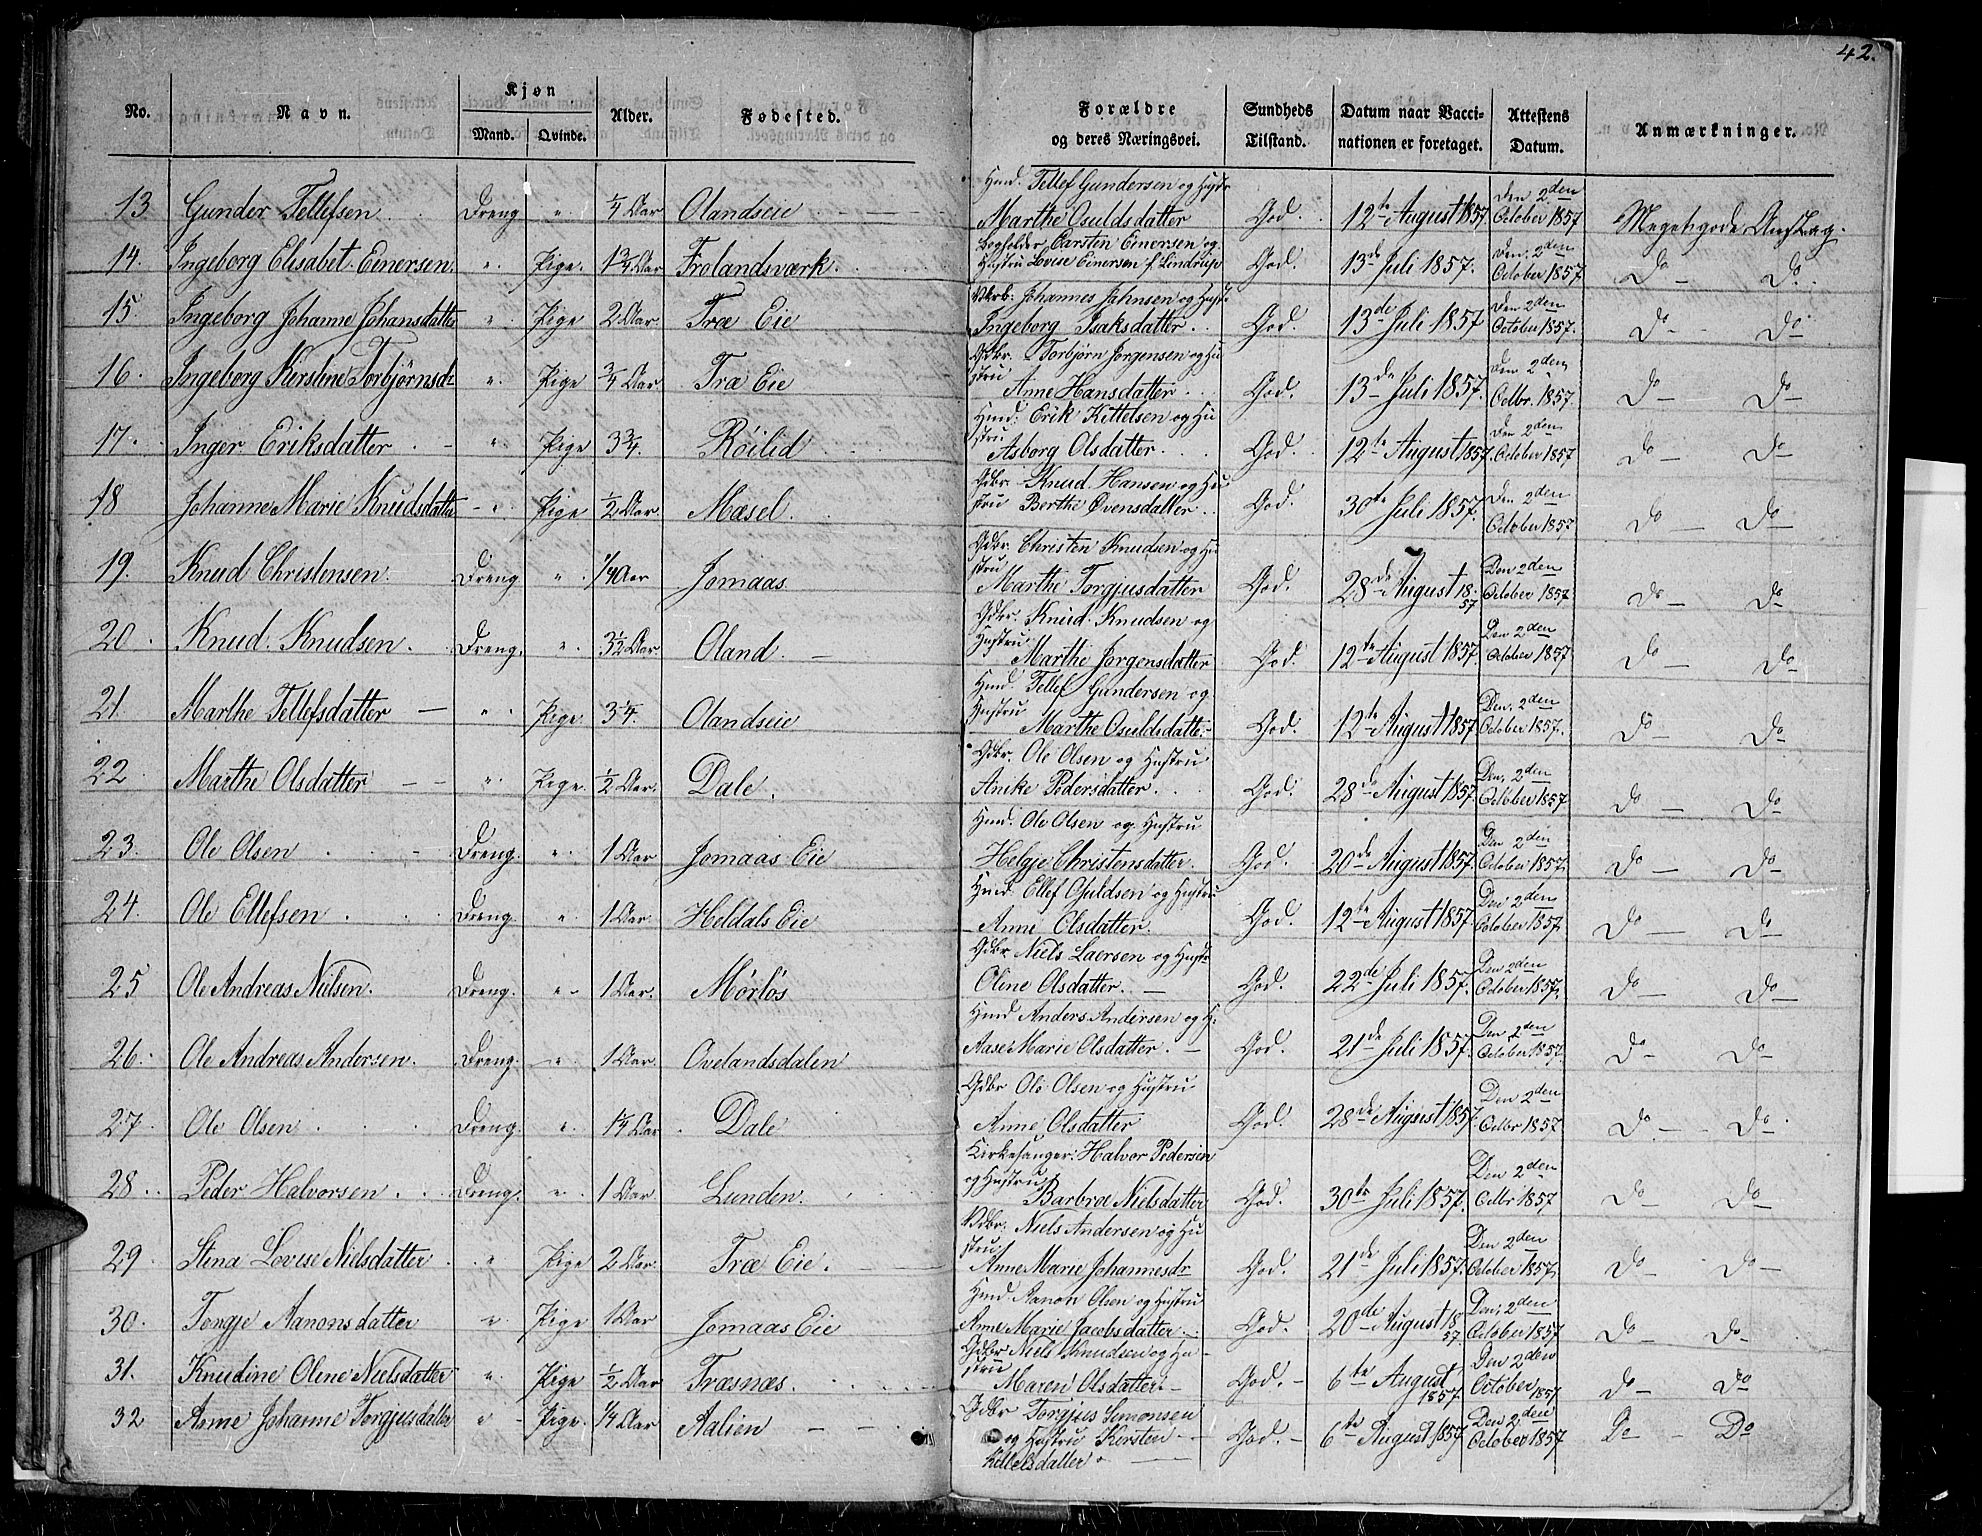 42.
No. Navn. Kjøn Alder. Fødested. Forældre Sundheds Datum naar Vacci- Attestens Anmærkninger.
Mand. Qvinde. og deres Næringsvei. Tilstand. nationen er foretaget. Datum.
Hmd. Tellef Gundersen og Hustr Den 2den
13 Gunder Tellefsen Dreng " 1/4 Aar Olandseie Marthe Osuldsdatter God. 12te August 1857 October 1857 Meget gode Anslag.
Carsten Einersen og Den 2den
14. Ingeborg Elisabet Einersen. " Pige. 1 3/4 Aar Frolandsværk. Hustru Lovise Einersen f. Lindrup God. 13de Juli 1857. October 1857 Do Do
Johannes Johnsen og Hustr. Den 2den
15. Ingeborg Johanne Johansdatter " Pige 2 Aar Træ Eie Ingeborg Isaksdatter God. 13de Juli 1857 October 1857. Do Do
Gdbr. Torbjørn Jørgensen og Hu Den 2den
16. Ingeborg Kirstine Torbjørnsdr " Pige 3/4 Aar Træ Eie stru Anne Hansdatter God. 13de Juli 1857. Octbr. 1857 Do Do
Hmd. Erik Kittelsen og Hu Den 2den
17. Inger Eriksdatter " Pige 3 3/4. Röilid stru Asborg Olsdatter God. 12te August 1857 October 1857 Do Do
Gdbr Knud Hansen og Hu Den 2den
18 Johanne Marie Knudsdatter " Pige 1/2 Aar. Masel. stru Berthe Øvensdatter God. 30te Juli 1857. October 1857 Do Do
Gdbr. Christen Knudsen og Hu Den 2den
19. Knud Christensen. Dreng " 1/4 Aar Jomaas. stru Marthe Torgjusdatter God. 28de August 1857 October 1857 Do Do
Gdbr. Knud Knudsen og Den 2den
20. Knud Knudsen. Dreng. " 3 1/2 Aar Oland. Hustru Marthe Jørgensdatter God. 12te August 1857 October 1857 Do Do
Hmd. Tellef Gundersen og Den 2den
21. Marthe Tellefsdatter " Pige 3 1/4. Olandseie Hustru Marthe Osuldsdatter God. 12te August 1857 October 1857. Do Do
Gdbr. Ole Olsen og Hustru Den 2den
22. Marthe Olsdatter " Pige. 1/2 Aar. Dale. Anike Pedersdatter. God. 28de August 1857. October 1857. Do Do
Hmd. Ole Olsen og Hustru Den 2den
23. Ole Olsen Dreng. " 1 Aar Jomaas Eie Helgje Christensdatter God. 20de August 1857. October 1857 Do Do
Hmd. Ellef Guldsen og Hustru Den 2den
24. Ole Ellefsen Dreng. " 1 Aar. Heldals Eie Anne Olsdatter. God. 12te August 1857. October 1857. Do Do
Gdbr Niels Laersen og Hustr. Den 2den
25 Ole Andreas Nielsen. Dreng. " 1 Aar. Mørløs Oline Olsdatter. God. 22de Juli 1857. October 1857. Do Do
Hmd Anders Andersen og H. Den 2den
26. Ole Andreas Andersen. Dreng. " 1 Aar. Ovelandsdalen Aase Marie Olsdatter. God. 21de Juli 1857. October 1857. Do Do
Gdbr Ole Olsen og Hustru Den 2den
27. Ole Olsen Dreng. " 1 1/4 Aar Dale Anne Olsdatter God. 28de August 1857. Octbr 1857 Do Do
Kirkesanger: Halvor Pedersen Den 2den
28. Peder Halvorsen. Dreng. " 1 Aar. Lunden. og Hustru Barbroe Nielsdatter God. 30te Juli 1857. Octbr 1857 Do Do
Niels Andersen og Hu Den 2den
29. Stena Lovise Nielsdatter " Pige 2 Aar. Træ Eie. stru Anne Marie Johannesdr God. 21de Juli 1857. October 1857. Do Do
Hmd Aanon Olsen og Hustru Den 2den
30. Tongje Aanonsdatter " Pige 1 Aar Jomaas Eie Anne Marie Jacobsdatter God. 20de August 1857 October 1857 Do Do
Gdbr Niels Knudsen og Hu Den 2den
31. Knudine Oline Nielsdatter " Pige 1/2 Aar Træsnæs. stru Maren Olsdatter. God. 6te August 1857. October 1857 Do Do
Gdbr Torgjus Simonsen Den 2den
32 Anne Johanne Torgjusdatter " Pige. 1/4 Aar Aalien og Hustru Kersten God. 6te August 1857 October 1857 Do Do
Kittelsdatter